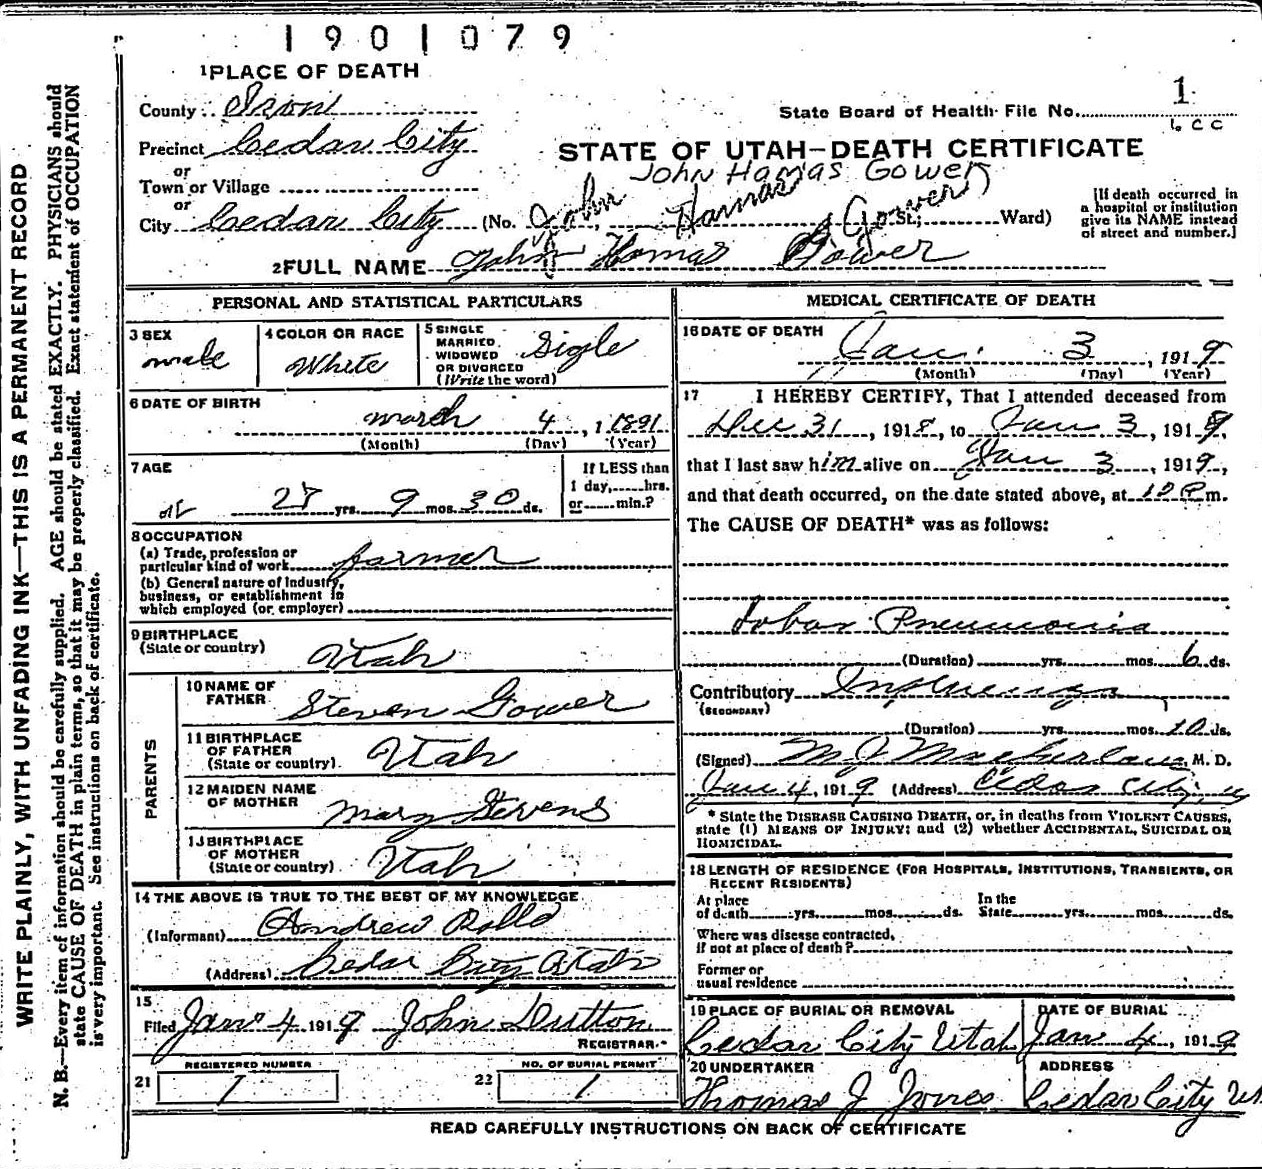 1901079
1 PLACE OF DEATH
County Iron
State Board of Health File No. 1
Precinct Cedar City
or
STATE OF UTAH—DEATH CERTIFICATE
John Hamas Gower
Town or Village
or
City Cedar City (No. John Hamas Gower St.; Ward)
[If death occurred in
a hospital or institution
give its NAME instead
of street and number.]
2 FULL NAME John Homas Gower
PERSONAL AND STATISTICAL PARTICULARS
3 SEX
male
4 COLOR OR RACE
White
5 SINGLE
MARRIED
WIDOWED
OR DIVORCED
(Write the word)
Sigle
6 DATE OF BIRTH
march 4, 1891
(Month) (Day) (Year)
7 AGE
27 yrs. 9 mos. 30 ds.
If LESS than
1 day, hrs.
or min.?
8 OCCUPATION
(a) Trade, profession or
particular kind of work farmer
(b) General nature of Industry,
business, or establishment in
which employed (or employer)
9 BIRTHPLACE
(State or country)
Utah
PARENTS
10 NAME OF
FATHER
Steven Gower
11 BIRTHPLACE
OF FATHER
(State or country)
Utah
12 MAIDEN NAME
OF MOTHER
Mary Stevens
13 BIRTHPLACE
OF MOTHER
(State or country)
Utah
14 THE ABOVE IS TRUE TO THE BEST OF MY KNOWLEDGE
(Informant) Andrew Rollo
(Address) Cedar City Utah
15
Filed Jan 4 1919 John Dutton
REGISTRAR.
REGISTERED NUMBER
21 1
NO. OF BURIAL PERMIT
22 1
MEDICAL CERTIFICATE OF DEATH
16 DATE OF DEATH
Jan. 3, 1919
(Month) (Day) (Year)
17 I HEREBY CERTIFY, That I attended deceased from
Dec 31, 1918, to Jan 3, 1919,
that I last saw him alive on Jan 3, 1919,
and that death occurred, on the date stated above, at 12 P m.
The CAUSE OF DEATH* was as follows:
Lobar Pneumonia
(Duration) yrs. mos. 6 ds.
Contributory Influenza
(SECONDARY)
(Duration) yrs. mos. 10 ds.
(Signed) M J Macfarlane, M. D.
Jan 4, 1919 (Address) Cedar City, U
* State the DISEASE CAUSING DEATH, or, in deaths from VIOLENT CAUSES,
state (1) MEANS OF INJURY; and (2) whether ACCIDENTAL, SUICIDAL OR
HOMICIDAL.
18 LENGTH OF RESIDENCE (FOR HOSPITALS, INSTITUTIONS, TRANSIENTS, OR
RECENT RESIDENTS)
At place
of death yrs. mos. ds.
In the
State yrs. mos. ds.
Where was disease contracted,
if not at place of death?
Former or
usual residence
19 PLACE OF BURIAL OR REMOVAL
Cedar City Utah
DATE OF BURIAL
Jan 4, 1919
20 UNDERTAKER
Thomas J Jones
ADDRESS
Cedar City Ut
READ CAREFULLY INSTRUCTIONS ON BACK OF CERTIFICATE
WRITE PLAINLY, WITH UNFADING INK—THIS IS A PERMANENT RECORD
N. B.—Every item of information should be carefully supplied. AGE should be stated EXACTLY. PHYSICIANS should
state CAUSE OF DEATH in plain terms, so that it may be properly classified. Exact statement of OCCUPATION
is very important. See instructions on back of certificate.